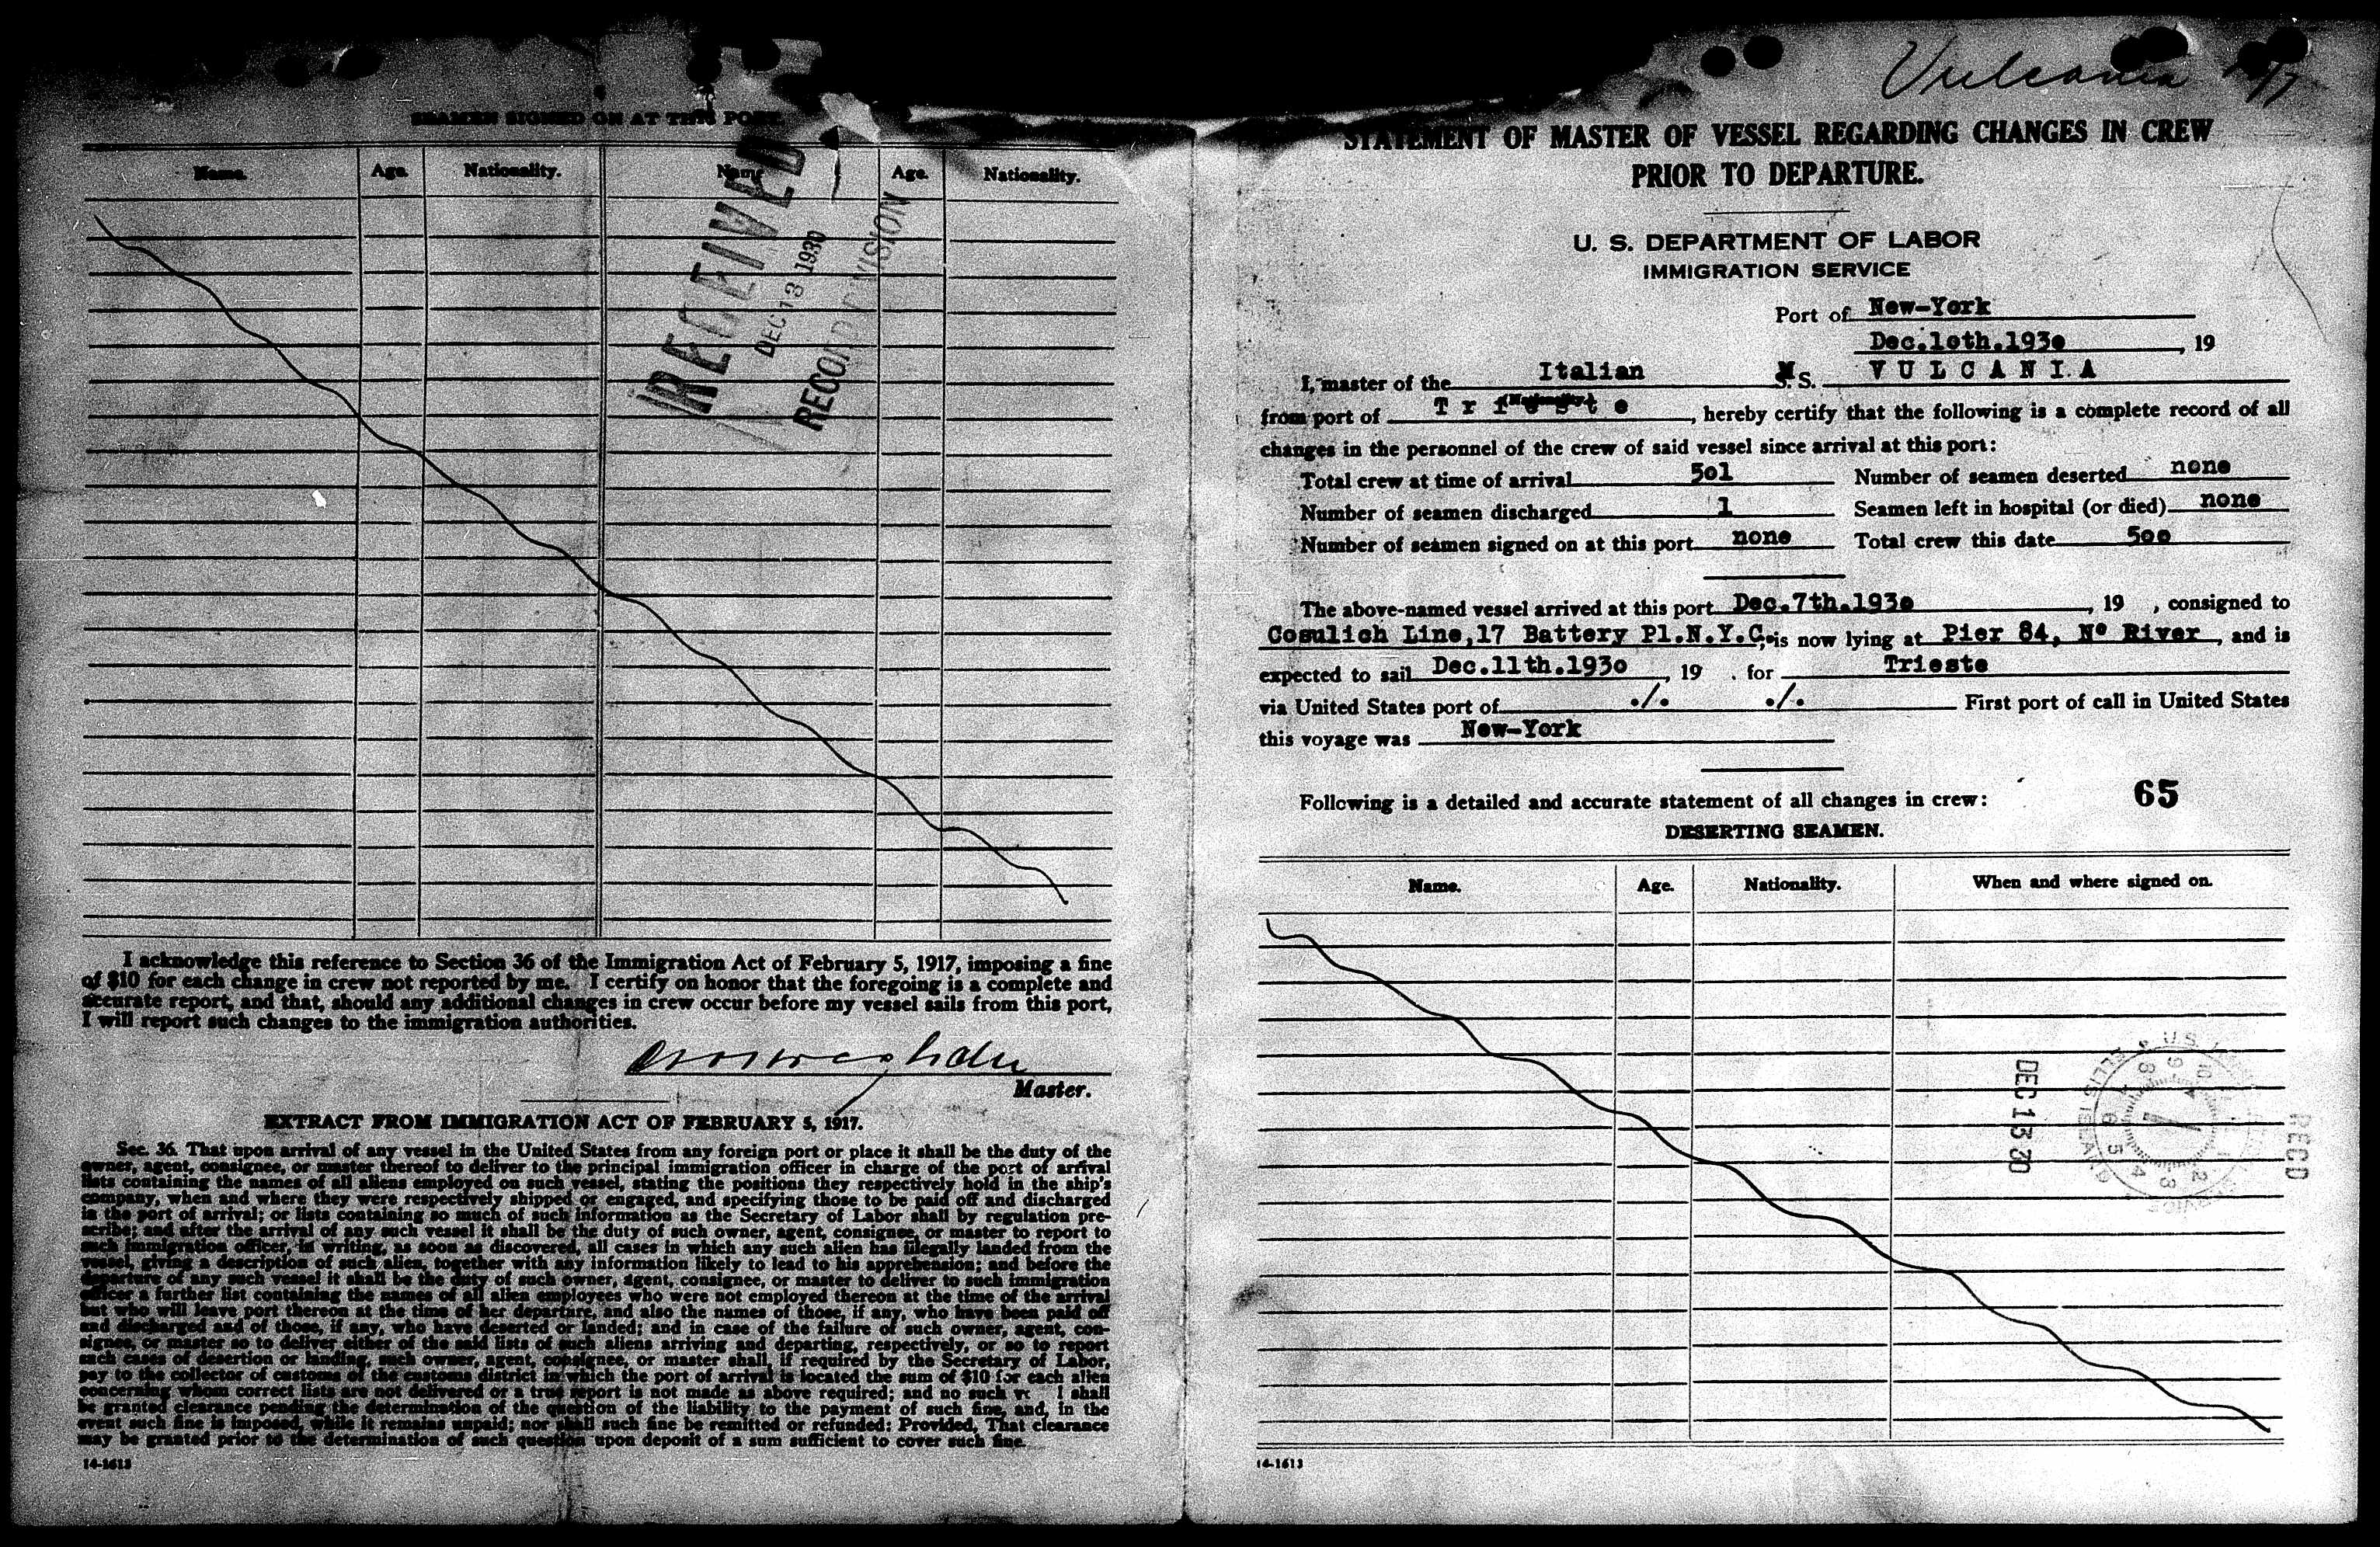 SEAMEN SIGNED ON AT THIS PORT.
Name. Age. Nationality. Name Age. Nationality.
RECEIVED
DEC 13 1930
RECORD DIVISION
I acknowledge this reference to Section 36 of the Immigration Act of February 5, 1917, imposing a fine
of $10 for each change in crew not reported by me. I certify on honor that the foregoing is a complete and
accurate report, and that, should any additional changes in crew occur before my vessel sails from this port,
I will report such changes to the immigration authorities.
Master.
EXTRACT FROM IMMIGRATION ACT OF FEBRUARY 5, 1917.
Sec. 36. That upon arrival of any vessel in the United States from any foreign port or place it shall be the duty of the
owner, agent, consignee, or master thereof to deliver to the principal immigration officer in charge of the port of arrival
lists containing the names of all aliens employed on such vessel, stating the positions they respectively hold in the ship's
company, when and where they were respectively shipped or engaged, and specifying those to be paid off and discharged
in the port of arrival; or lists containing so much of such information as the Secretary of Labor shall by regulation pre-
scribe; and after the arrival of any such vessel it shall be the duty of such owner, agent, consignee, or master to report to
such immigration officer, in writing, as soon as discovered, all cases in which any such alien has illegally landed from the
vessel, giving a description of such alien, together with any information likely to lead to his apprehension; and before the
departure of any such vessel it shall be the duty of such owner, agent, consignee, or master to deliver to such immigration
officer a further list containing the names of all alien employees who were not employed thereon at the time of the arrival
but who will leave port thereon at the time of her departure, and also the names of those, if any, who have been paid off
and discharged and of those, if any, who have deserted or landed; and in case of the failure of such owner, agent, con-
signee, or master so to deliver either of the said lists of such aliens arriving and departing, respectively, or so to report
such cases of desertion or landing, such owner, agent, consignee, or master shall, if required by the Secretary of Labor,
pay to the collector of customs of the customs district in which the port of arrival is located the sum of $10 for each alien
concerning whom correct lists are not delivered or a true report is not made as above required; and no such shall
be granted clearance pending the determination of the question of the liability to the payment of such fine, and, in the
event such fine is imposed, while it remains unpaid; nor shall such fine be remitted or refunded: Provided, That clearance
may be granted prior to the determination of such question upon deposit of a sum sufficient to cover such fine.
14-1613
Vulcania
STATEMENT OF MASTER OF VESSEL REGARDING CHANGES IN CREW
PRIOR TO DEPARTURE.
U. S. DEPARTMENT OF LABOR
IMMIGRATION SERVICE
Port of New-York
Dec.1oth.193o, 19
I, master of the Italian M S. VULCANIA
(Nationality.)
from port of Trieste, hereby certify that the following is a complete record of all
changes in the personnel of the crew of said vessel since arrival at this port:
Total crew at time of arrival 5o1 Number of seamen deserted none
Number of seamen discharged 1 Seamen left in hospital (or died) none
Number of seamen signed on at this port none Total crew this date 5oo
The above-named vessel arrived at this port Dec.7th.193o, 19 , consigned to
Cosulich Line,17 Battery Pl.N.Y.C., is now lying at Pier 84, Nº River, and is
expected to sail Dec.11th.193o, 19 . for Trieste
via United States port of ./. ./. First port of call in United States
this voyage was New-York
Following is a detailed and accurate statement of all changes in crew: 65
DESERTING SEAMEN.
Name. Age. Nationality. When and where signed on.
DEC 13 30
RECD
14-1613